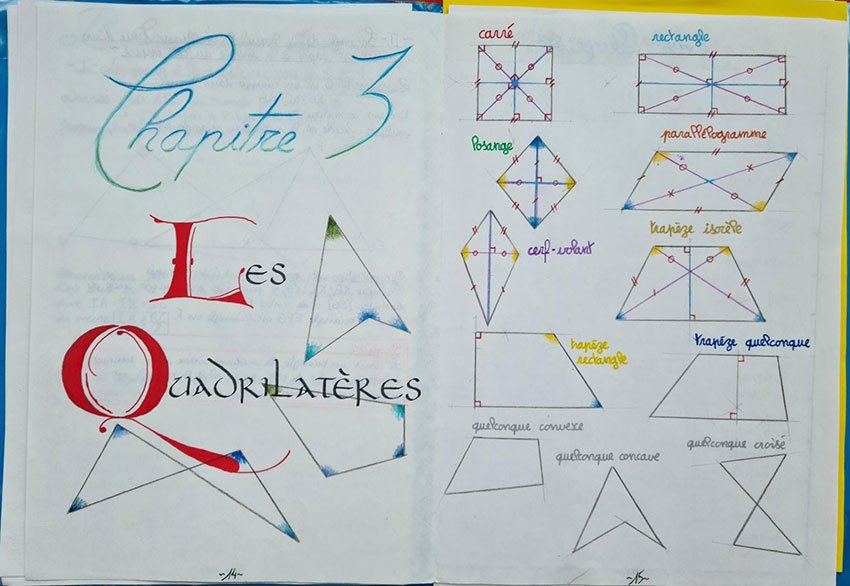 Chapitre 3
Les
Quadrilatères
~14~
carré
rectangle
losange
parallélogramme
cerf-volant
trapèze isocèle
trapèze
rectangle
trapèze quelconque
quelconque convexe
quelconque concave
quelconque croisé
~15~